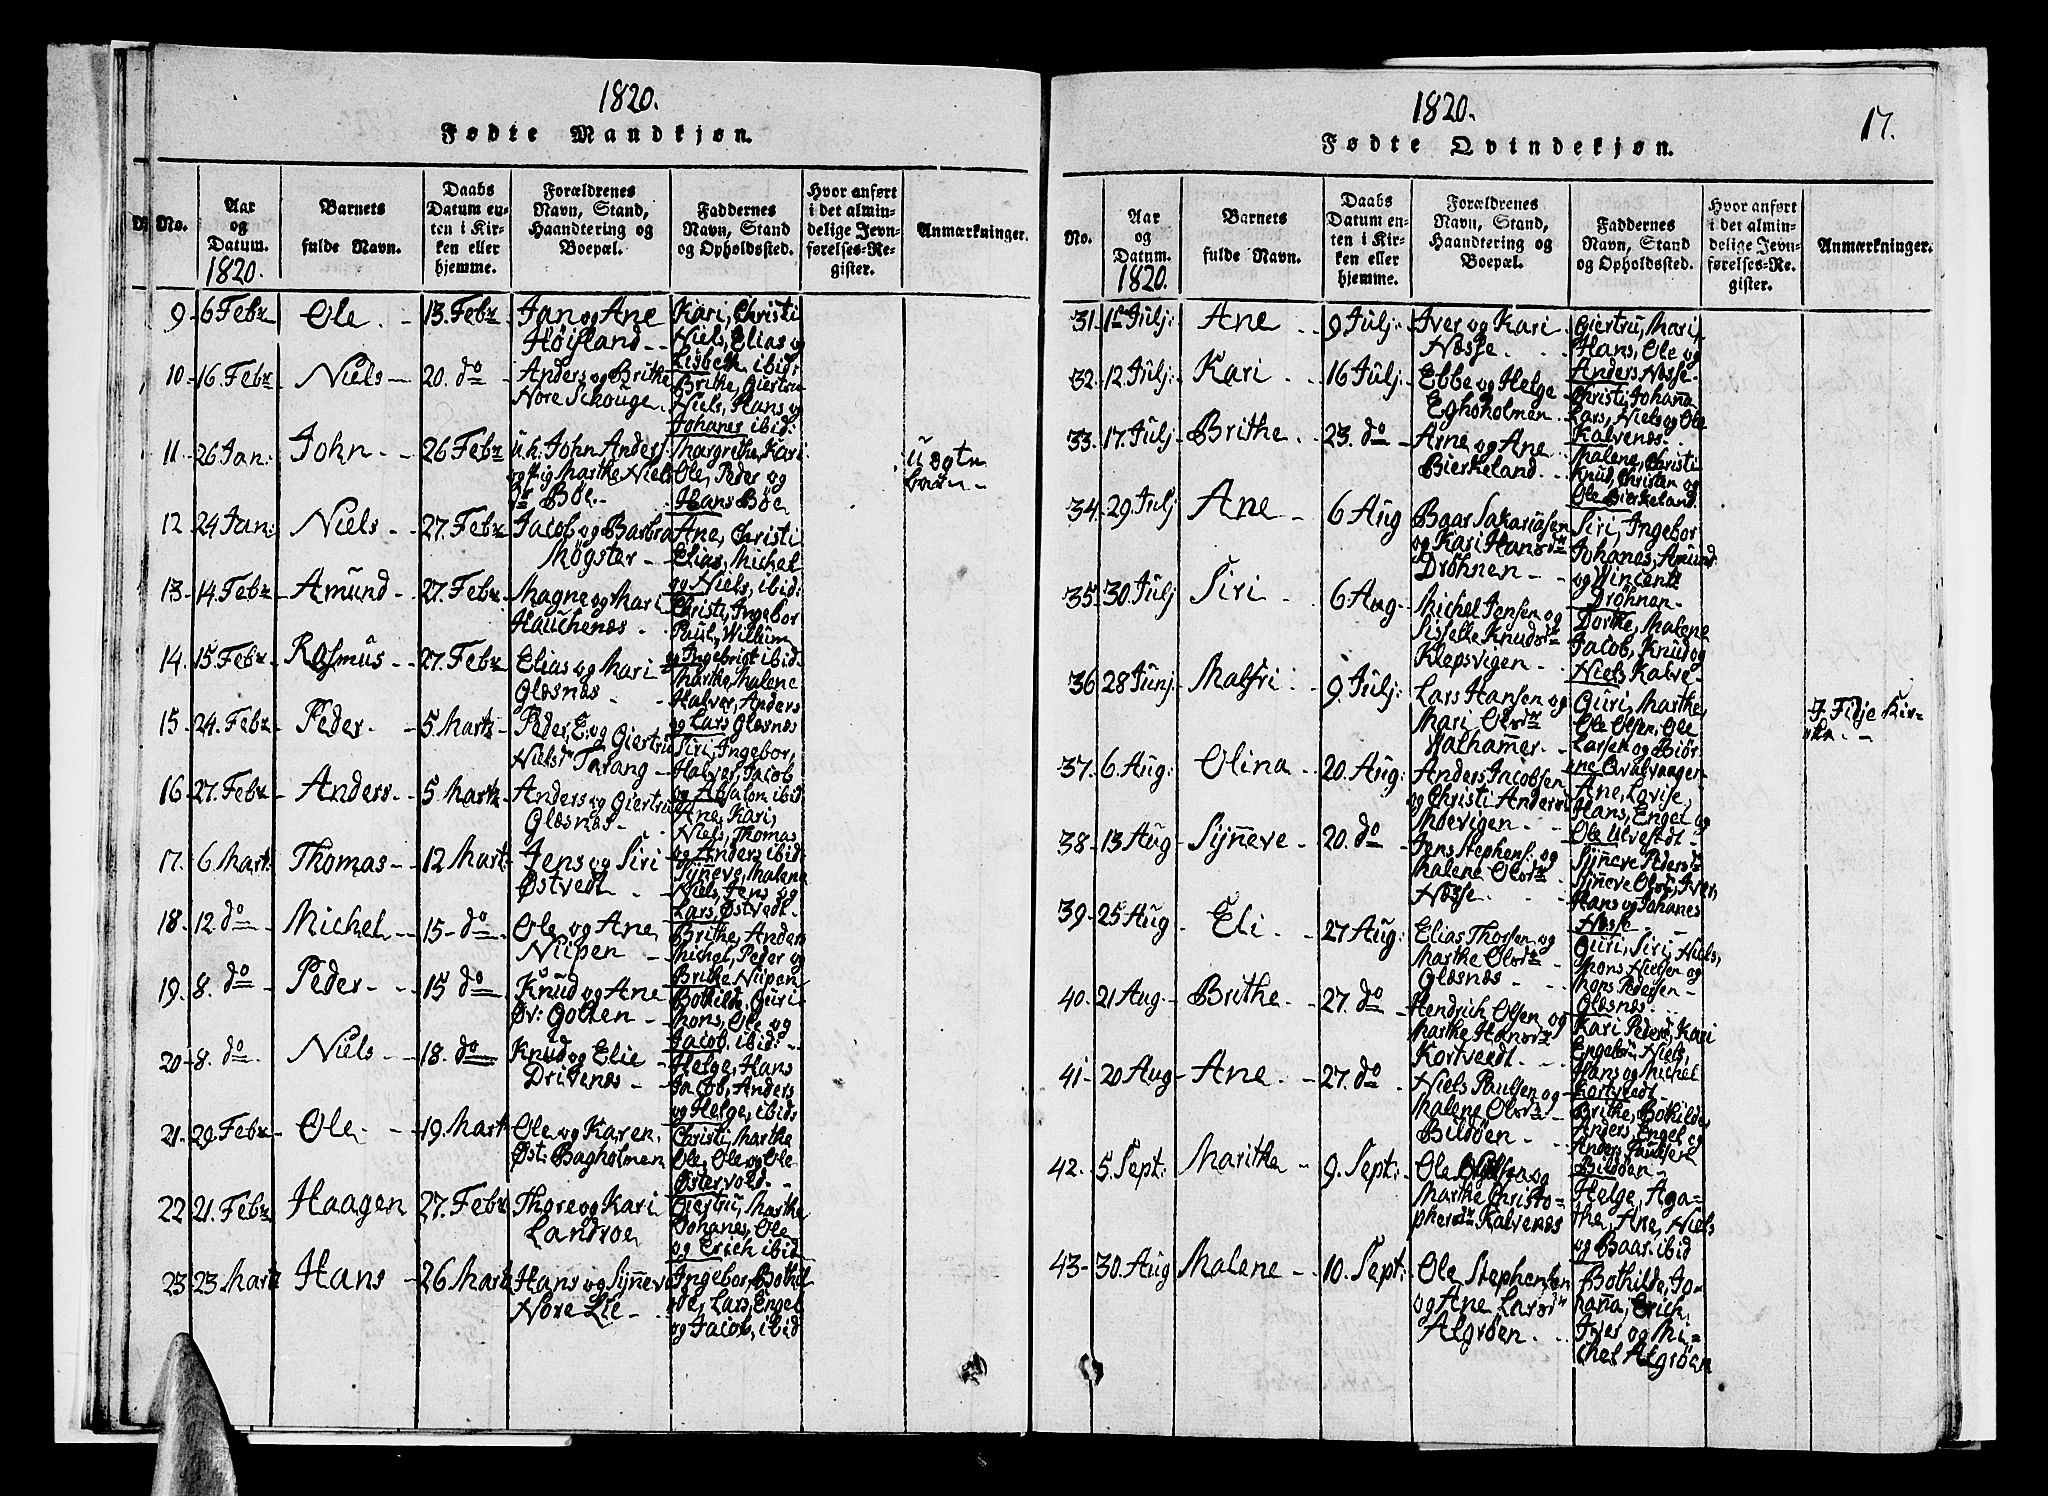 1820.
Fødte Mandkjøn.
No.
Aar
og
Datum.
1820.
Barnets
fulde Navn.
Daabs
Datum en-
ten i Kir-
ken eller
hjemme.
Forældrenes
Navn, Stand,
Haandtering og
Boepæl.
Faddernes
Navn, Stand
og Opholdssted.
Hvor anført
i det almin-
delige Jevn-
førelses-Re-
gister.
Anmærkninger.
9 6 Febr Ole 13. Febr Jan og Ane
Høisland
Kari, Christi
Niels, Elias og
Lisbeth ibid:
10 16. Febr Niels 20. do Anders og Brithe
Nore Schouge
Brithe, Giertru
Niels, Hans og
Johanes ibid:
11 26 Jan: John 26 Febr u.k. John Anders:
og Pig Marthe Niels
dr Bøe
Margrethe, Kari
Ole, Peder og
Hans Bøe
12 24 Jan: Niels 27. Febr Jacob og Barbra
Møgster
Ane, Christi
Elias, Michel
og Niels, ibid:
13 14. Febr Amund 27. Febr Magne og Mari
Hauchenæs
Christi, Ingebor
Paul, Willum
og Ingebrigt ibid.
14. 15. Febr Rasmus 27. Febr Elias og Mari
Glæsnæs
Marthe, Malene
Halver, Anders
og Lars Glæsnæs
15 24. Febr Peder 5. Martz Peder E. og Giertru
Nielsdr Tarang
Siri, Ingebor,
Halver, Jacob
og Absalon ibid
16 27. Febr Anders 5 Martz Anders og Giertru
Glæsnæs
Ane, Kari,
Niels, Thomas
og Anders ibid:
17. 6. Mart: Thomas 12 Mart: Jens og Siri
Østvedt
Syneve, Malene
Niels, Jens og
Lars, Østvedt.
18. 12. do Michel 15 do Ole og Ane
Niipen
Brithe, Anders
Michel, Peder og
Brithe Niipen
19. 8. do Peder 15 do Knud og Ane
Øv: Golten
Bothilde, Guri
Mons, Ole og
Jacob, ibid:
20 8. do Niels 18. do Knud og Elie
Drivenæs
Helge, Hans
Jacob, Anders
og Helge, ibid:
21. 29. Febr Ole 19. Mart Ole og Karen
Øst: Bagholmen
Christi, Marthe
Ole, Ole og Ole
Østervold
22 21. Febr Haagen 27. Febr Thore og Kari
Landroe
Giertru, Marthe
Johanes, Ole
og Erich ibid
23 23. Martz Hans 26. Martz Hans og Syneve
Nore Lie
Ingebor, Bothil
de, Lars, Engel
og Jacob, ibid
1820.
17.
Fødte Qvindekjøn.
No.
Aar
og
Datum.
1820.
Barnets
fulde Navn.
Daabs
Datum en-
ten i Kir-
ken eller
hjemme.
Forældrenes
Navn, Stand,
Haandtering og
Boepæl.
Faddernes
Navn, Stand
og Opholdssted.
Hvor anført
i det almin-
delige Jevn-
førelses-Re-
gister.
Anmærkninger.
31. Julj: Ane 9 Julj: Iver og Kari
Næsse
Giertru, Mari,
Hans, Ole og
Anders Næsse
32. 12. Julj: Kari 16 Julj: Ebbe og Helge
Eghoholmen
Christi, Johana
Lars, Niels og Ole
Kalvenæs
33. 17. Julj Brithe 23. do Arne og Ane
Bierkeland
Malene, Christi
Knud, Christen og
Ole Bierkeland
34. 29 Julj Ane 6 Aug Baar Sakariasen
og Kari Hansdr
Drøhnen
Siri, Ingebor
Johanes, Amund
og Vincents
Drøhnen
35. 30 Julj Siri 6 Aug Michel Jensen og
Sisselle Knudsdr
Klepsvigen
Dorthe, Malene
Jacob, Knud og
Niels Kalve
36 28 Junj Malfri 9. Julj: Lars Hansen og
Mari Olsdr
Walhamer
Guri, Marthe
Ole Olsen, Ole
Larsen og Biør
ne Qvalvaagen
J. Filje Kir-
ke
37. 6. Aug: Olina 20 Aug: Anders Jacobsen
og Christi Andersdr
Moevigen
Ane, Lovise,
Hans, Engel og
Ole Ulvestedt
38 13 Aug Syneve 20. do Jens Stephens: og
Malene Olsdr
Næsse
Syneve Pedersdr
Syneve Olsdr, Iver,
Hans og Johanes
Næsse
39. 25 Aug Eli 27 Aug: Elias Thorsen og
Marthe Olsdr
Glæsnæs
Guri, Siri, Niels,
Mons Nielsen og
Mons Pedersen
Glæsnæs
40. 21 Aug Brithe 27. do Hendrich Olsen og
Marthe Hansdr
Kortveedt
Kari Pedersdr, Kari
Engelsdr, Niels,
Hans og Michel
Kortveedt
41 20 Aug Ane 27. do Niels Paulsen og
Malene Olsdr
Bildøen
Brithe, Bothilde
Anders, Engel og
Anders Paulsen
Bildøen
42. 5. Sept: Marithe 9. Sept: Ole
Marthe Christo-
phersdr Kalvenæs
Helge, Aga-
the, Ane, Niels
og Baar. ibid
43 30. Aug Malene 10. Sept: Ole Stephensen
og Ane Larsdr
Algrøen
Bothilde, Jo-
hana, Erich
Iver og Mi-
chel Algrøen